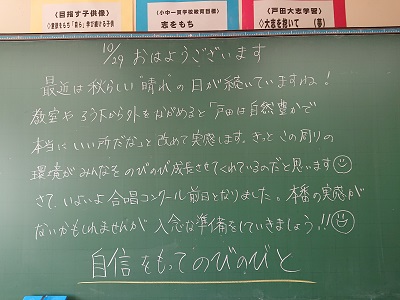 〈目指す子供像〉
〈小中一貫学校教育目標〉
志をもち
〈戸田大志学習〉
◇大志を抱いて (夢)
10/29 おはようございます
最近は秋らしい"晴れ"の日が続いていますね!
教室やろう下から外をながめると「戸田は自然豊かで
本当にいい所だな」と改めて実感します。きっとこの周りの
環境がみんなをのびのび成長させてくれているのだと思います
さて、いよいよ合唱コンクール前日となりました。本番の実感が
ないかもしれませんが 入念な準備をしていきましょう!!
自信をもってのびのびと